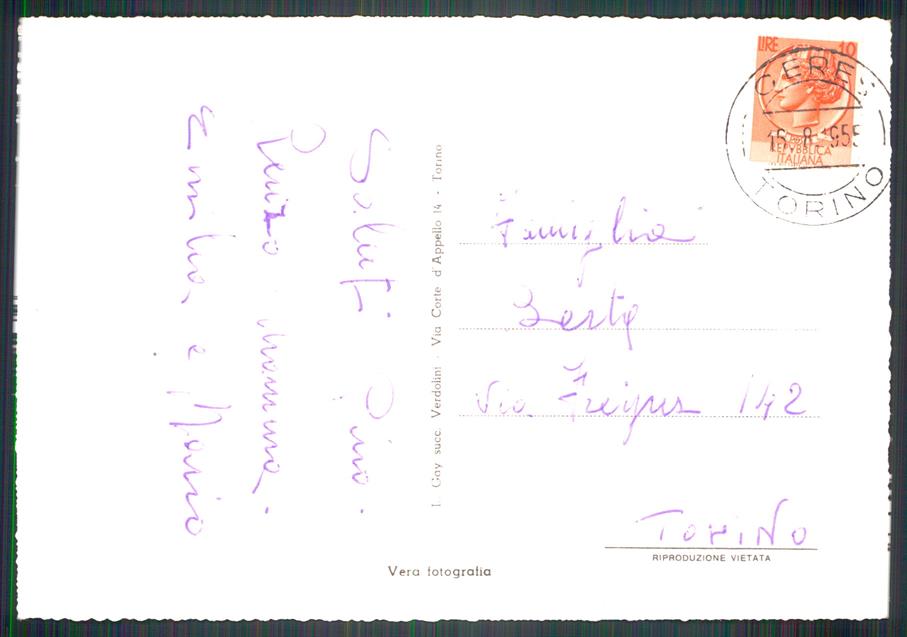 Saluti Pino.
Renzo mamma.
Emilia e Mario
I. Gay succ. Verdolini - Via Corte d'Appello 14 - Torino
Vera fotografia
LIRE 10
REPVBBLICA
ITALIANA
CERES
15.8.1955
TORINO
Famiglia
Berta
Via Frejus 142
TORINO
RIPRODUZIONE VIETATA